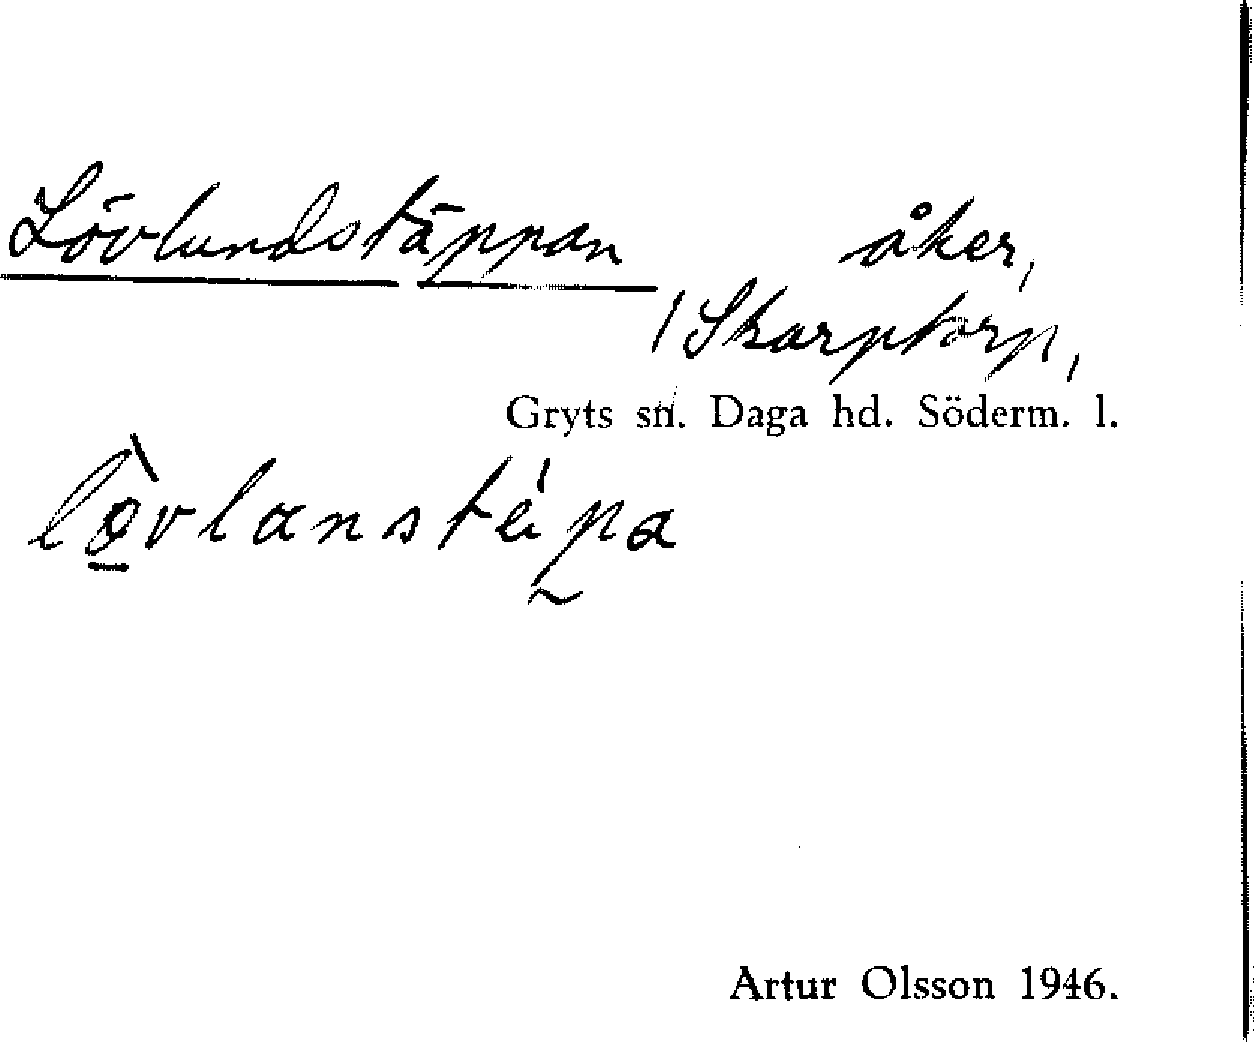 Lövlundstäppan åker,
/ Skarptorp,
Gryts sn. Daga hd. Söderm. l.
lòvlanstépa
Artur Olsson 1946.